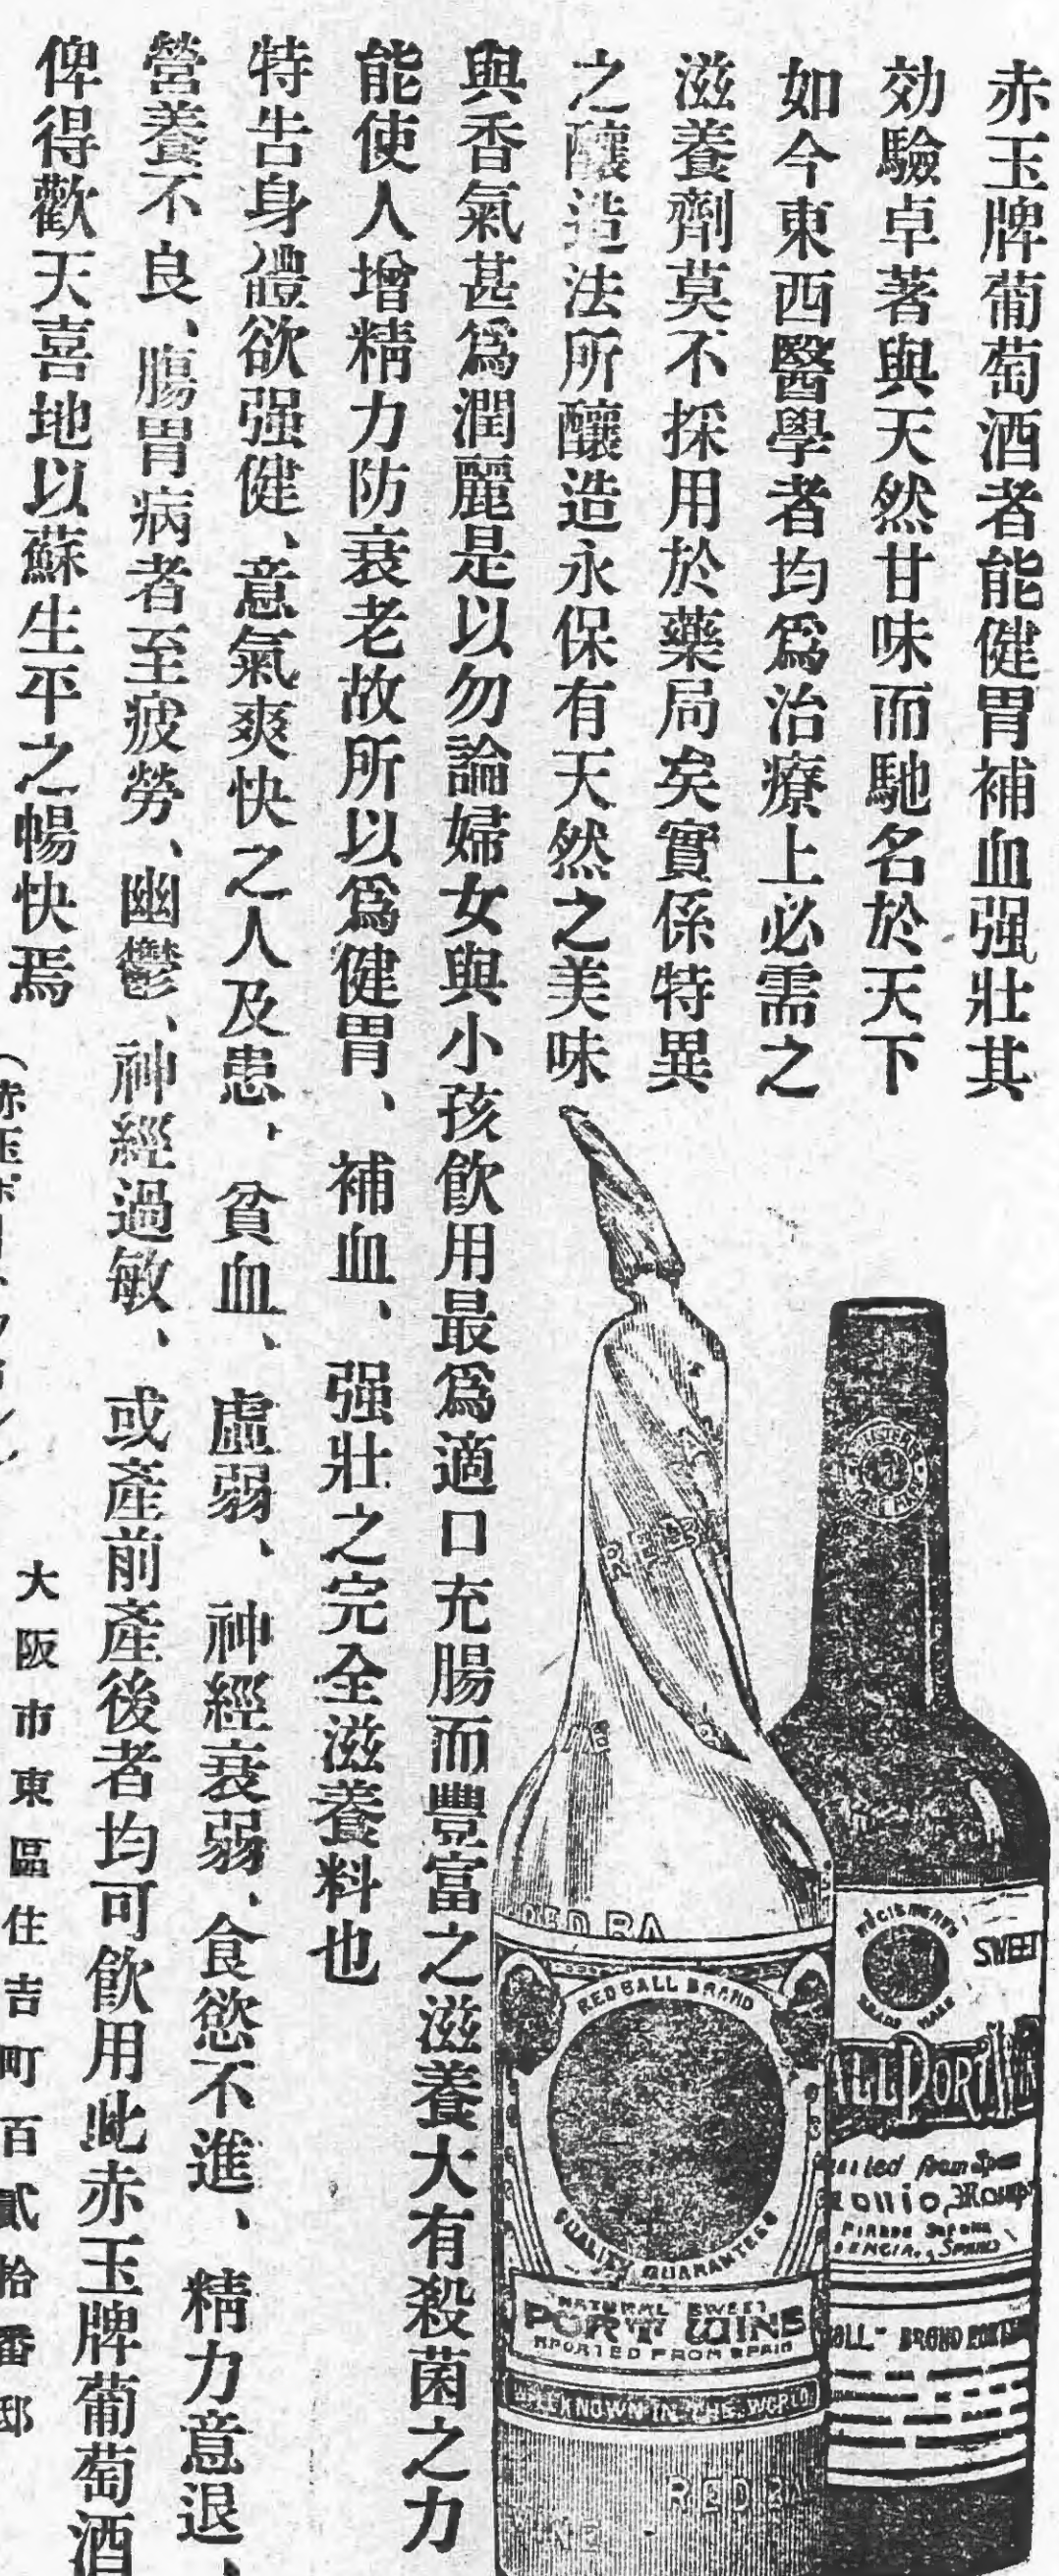 赤玉牌葡萄酒者能健胃補血强壯其
効驗卓著與天然甘味而馳名於天下
如今東西醫學者均爲治療上必需之
滋養劑莫不採用於藥局矣實係特異
之釀造法所釀造永保有天然之美味
與香氣甚爲潤麗是以勿論婦女與小孩飲用最爲適口充腸而豐富之滋養大有殺菌之力
能使人增精力防衰老故所以爲健胃、補血、强壯之完全滋養料也
特告身體欲强健、意氣爽快之人及患、貧血、虛弱、神經衰弱、食慾不進、精力意退、
營養不良、腸胃病者至疲勞、幽鬱、神經過敏、或產前產後者均可飲用此赤玉牌葡萄酒
俾得歡天喜地以蘇生平之暢快焉
大阪市東區住吉町百貳拾番邸
RED BA
RED BALL BRAND
QUALITY GUARANTEED
NATURAL SWEET
PORT WINE
IMPORTED FROM SPAIN
WELL KNOWN IN THE WORLD
RED BA
NE